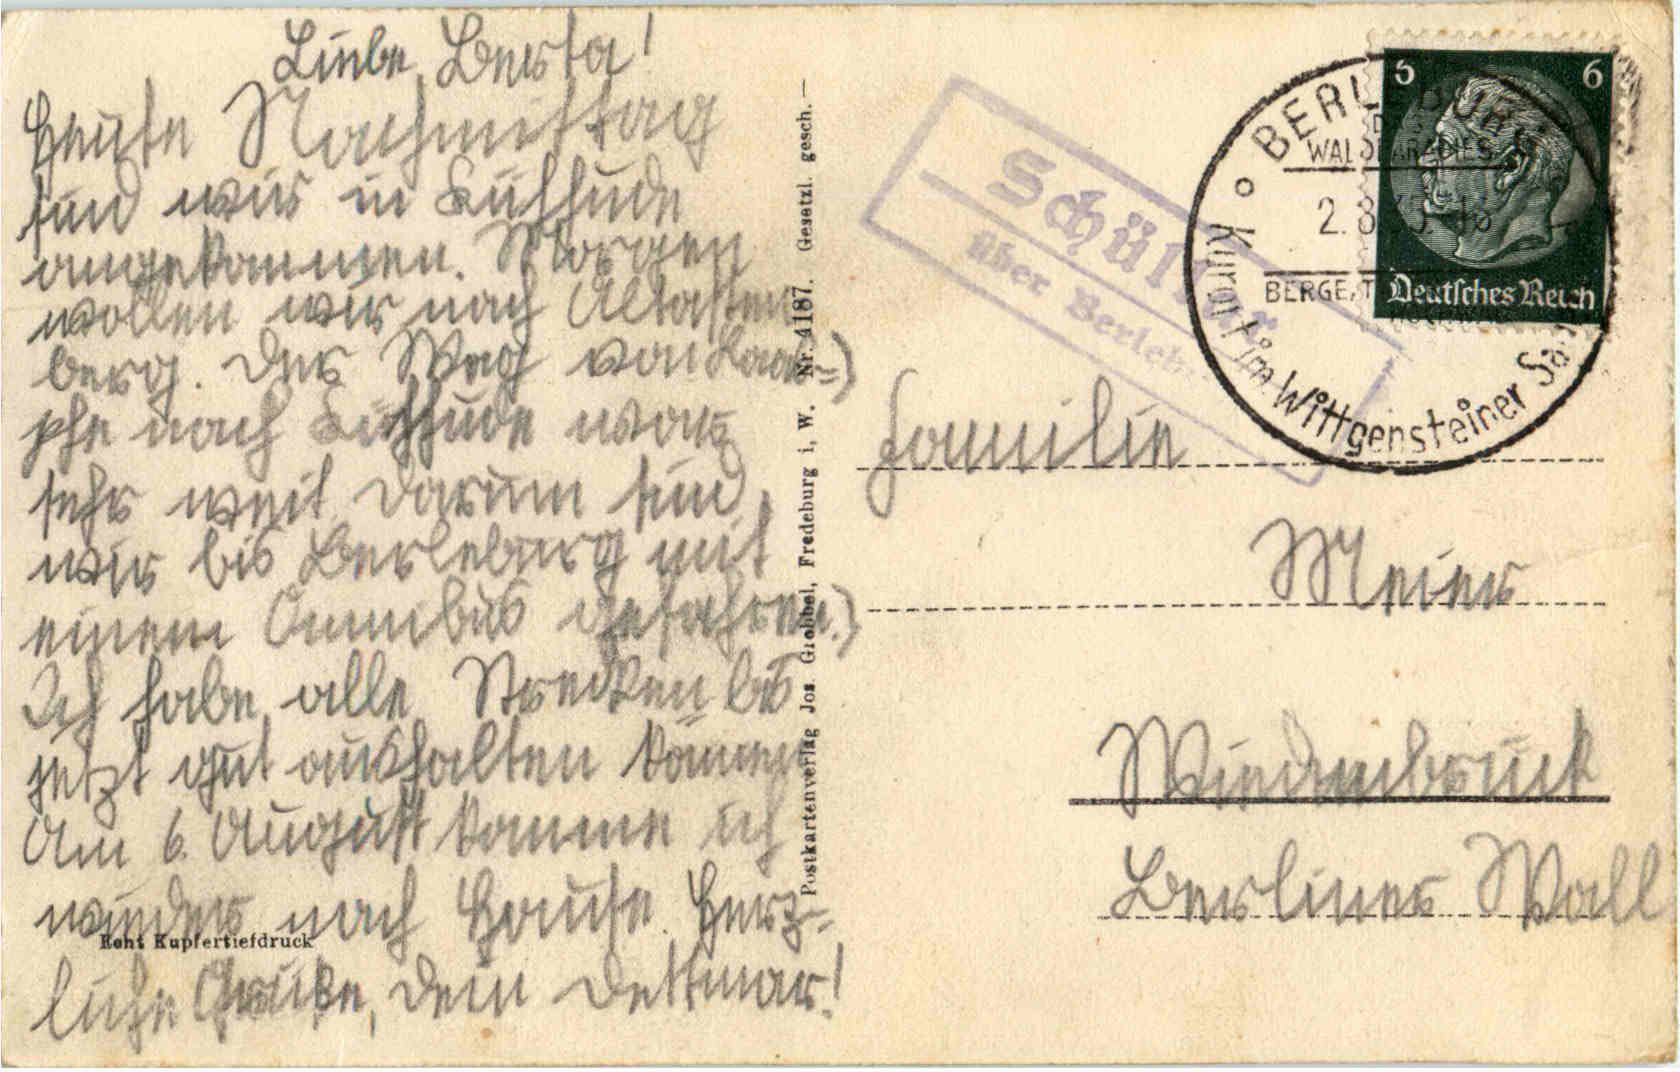 Liebe Berta!
Heute Nachmittag
sind wir in Lüthside
angekommen. Morgen
wollen wir nach Altasten
berg. Der Weg von Laas=)
phe nach war
sehr weit darum sind
wir bis Berleburg mit
einem Omnibus gefahren.)
Ich habe alle Strecken bis
jetzt gut aushalten können
Am 6. August komme ich
wieder nach Hause. Herz=
liche Grüße, Dein Dettmar!
Echt Kupfertiefdruck
Postkartenverlag Jos. Grobbel, Fredeburg i. W. Nr. 4187. Gesetzl. gesch.—
Schüll ar
über Berleb
BERLEBURG
WALDPARADIES
2. 8.
BERGE, T
Kurort im Wittgensteiner Sau
5 6
Deutsches Reich
Familie
Meier
Wiedenbrück
Berliner Wall